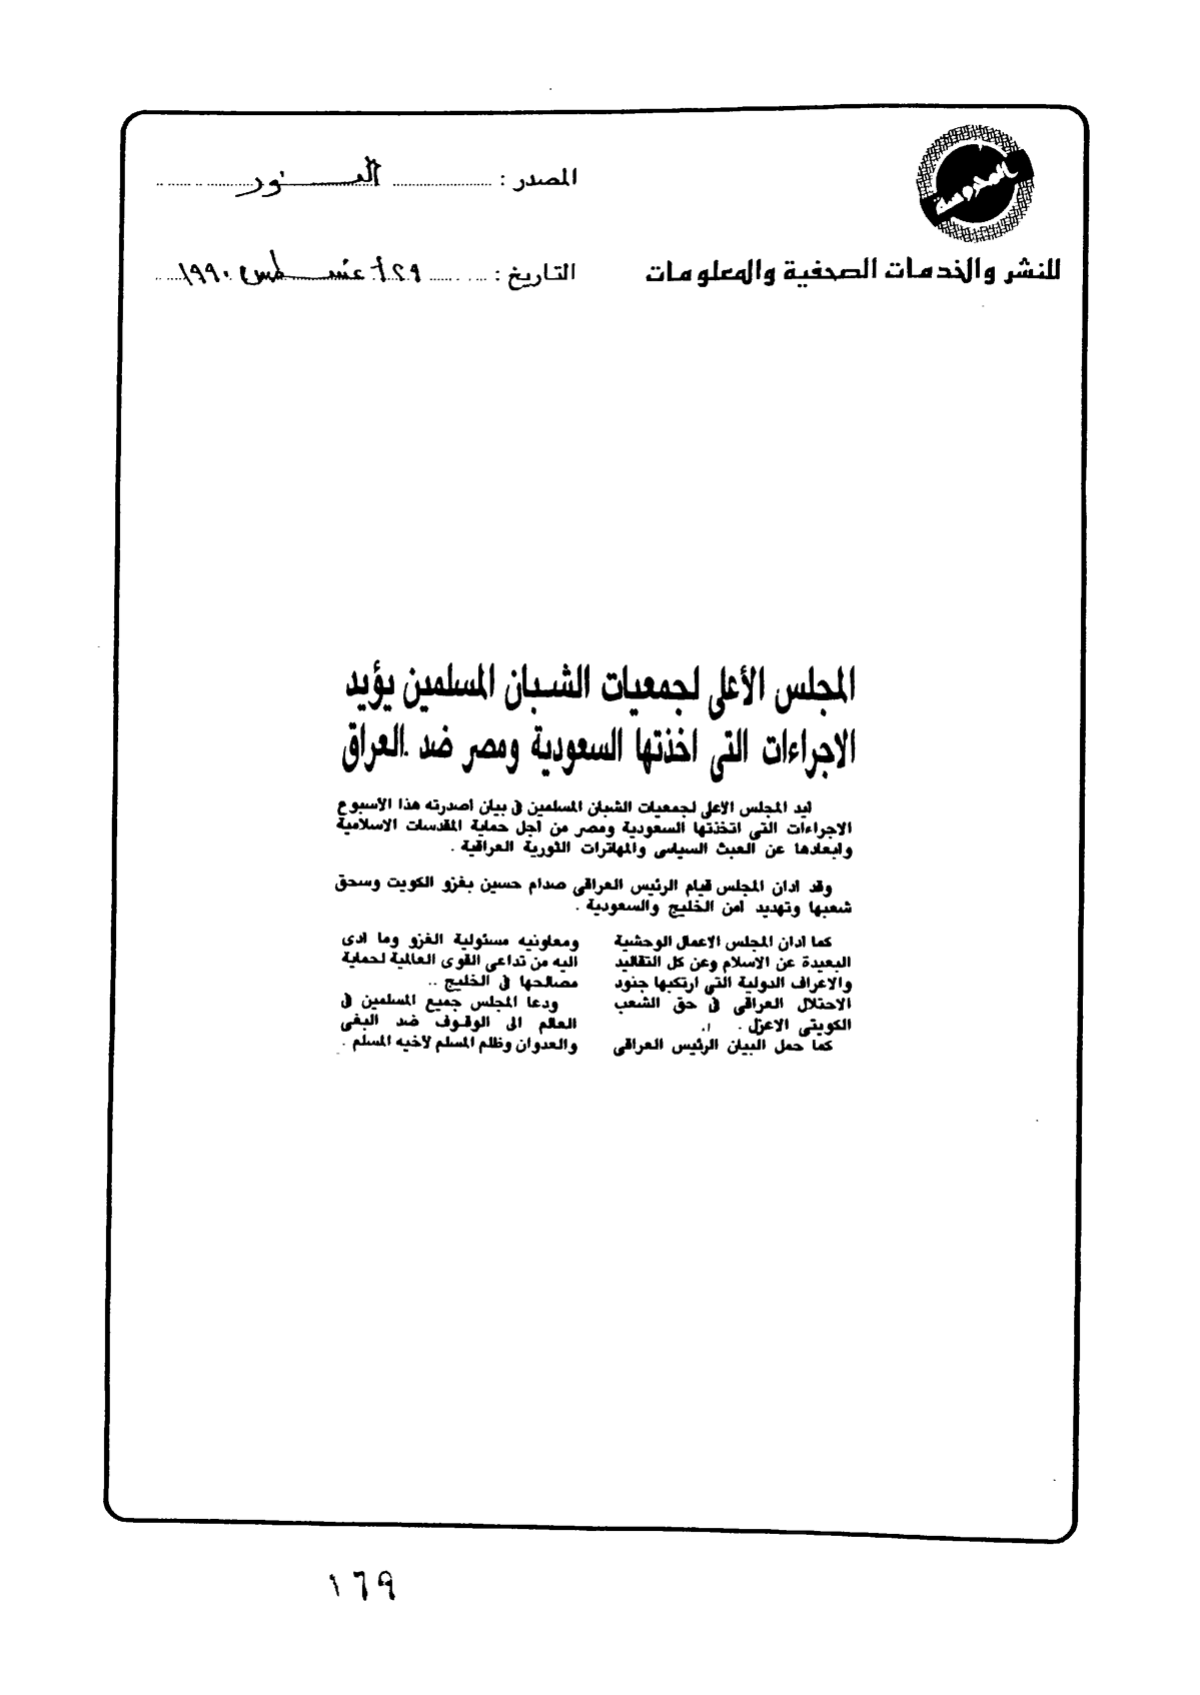 المحروسة
للنشر والخدمات الصحفية والمعلومات
المصدر : النور
التاريخ : ٢٩ أغسطس ١٩٩٠
المجلس الأعلى لجمعيات الشبان المسلمين يؤيد
الاجراءات التى اخذتها السعودية ومصر ضد العراق
ايد المجلس الأعلى لجمعيات الشبان المسلمين فى بيان أصدرته هذا الأسبوع
الاجراءات التى اتخذتها السعودية ومصر من أجل حماية المقدسات الاسلامية
وابعادها عن العبث السياسى والمهاترات الثورية العراقية .
وقد ادان المجلس قيام الرئيس العراقى صدام حسين بغزو الكويت وسحق
شعبها وتهديد امن الخليج والسعودية .
كما ادان المجلس الاعمال الوحشية
البعيدة عن الاسلام وعن كل التقاليد
والاعراف الدولية التى ارتكبها جنود
الاحتلال العراقى فى حق الشعب
الكويتى الاعزل .
كما حمل البيان الرئيس العراقى
ومعاونيه مسئولية الغزو وما ادى
اليه من تداعى القوى العالمية لحماية
مصالحها فى الخليج ..
ودعا المجلس جميع المسلمين فى
العالم الى الوقوف ضد البغى
والعدوان وظلم المسلم لأخيه المسلم .
١٦٩